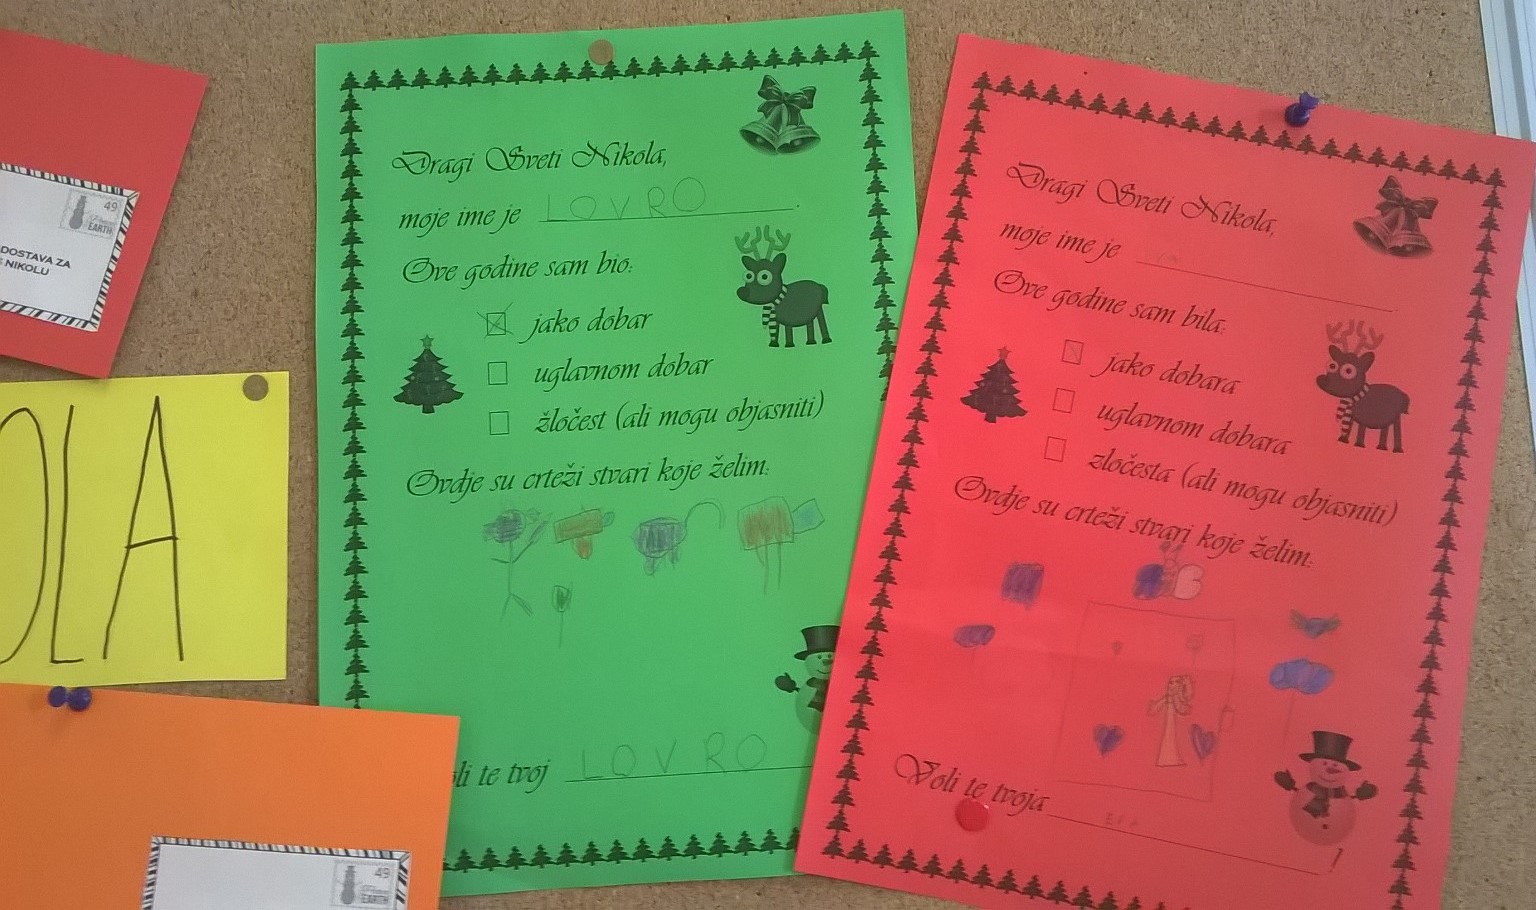 49
DOSTAVA ZA
NIKOLU
OLA
49
Dragi Sveti Nikola,
moje ime je LOVRO.
Ove godine sam bio:
jako dobar
uglavnom dobar
žločest (ali mogu objasniti)
Ovdje su crteži stvari koje želim:
oli te tvoj LOVRO
Dragi Sveti Nikola,
moje ime je
Ove godine sam bila:
jako dobara
uglavnom dobara
zločesta (ali mogu objasniti)
Ovdje su crteži stvari koje želim:
Voli te tvoja !